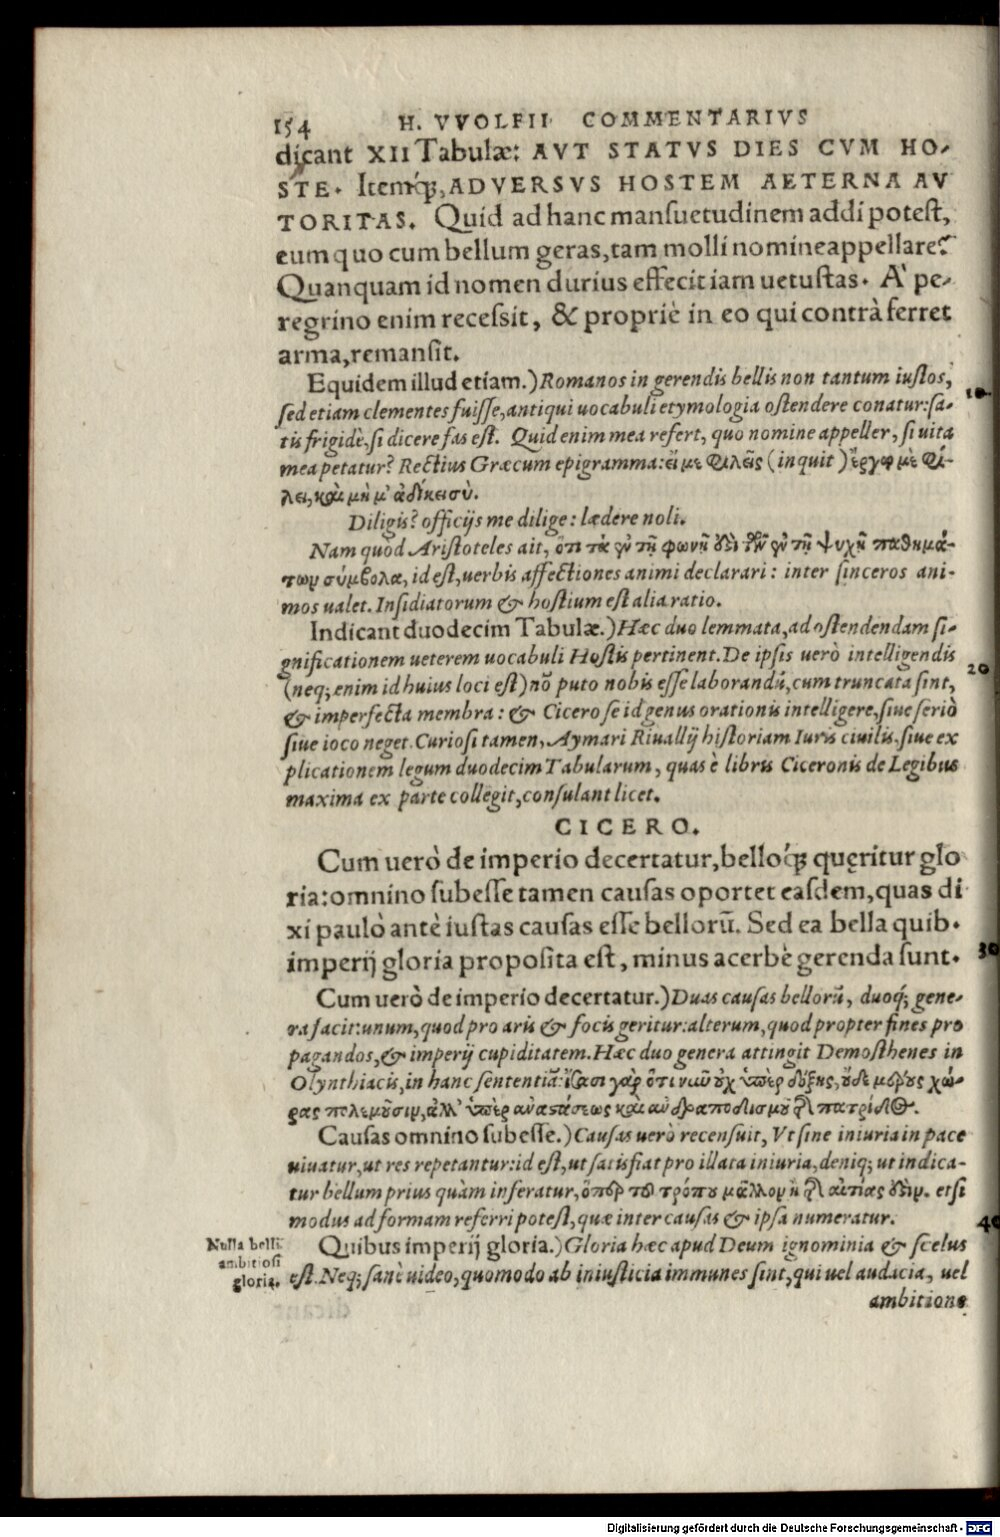 154 H. VVOLFII COMMENTARIVS
dicant XII Tabulæ: AVT STATVS DIES CVM HO-
STE. Itemq́;, ADVERSVS HOSTEM AETERNA AV
TORITAS. Quid ad hanc mansuetudinem addi potest,
eum quo cum bellum geras, tam molli nomine appellare?
Quanquam id nomen durius effecit iam uetustas. A' pe-
regrino enim recessit, & propriè in eo qui contrà ferret
arma, remansit.
Equidem illud etiam.) Romanos in gerendis bellis non tantum iustos, 10
sed etiam clementes fuisse, antiqui uocabuli etymologia ostendere conatur: sa-
tis frigidè, si dicere fas est. Quid enim mea refert, quo nomine appeller, si uita
mea petatur? Rectius Græcum epigramma: εἴ με φιλεῖς (inquit) ἔργῳ μὲ φί-
λει, καὶ μὴ μ' ἀδίκει σὺ.
Diligis? officijs me dilige: lædere noli.
Nam quod Aristoteles ait, ὅτι τὰ ἐν τῇ φωνῇ δεῖ τῶν ἐν τῇ ψυχῇ παθημά-
των σύμβολα, id est, uerbis affectiones animi declarari: inter sinceros ani-
mos ualet. Insidiatorum & hostium est alia ratio.
Indicant duodecim Tabulæ.) Hæc duo lemmata, ad ostendendam si-
gnificationem ueterem uocabuli Hostis pertinent. De ipsis uerò intelligendis 20
(neq; enim id huius loci est) nõ puto nobis esse laborandũ, cum truncata sint,
& imperfecta membra: & Cicero se id genus orationis intelligere, siue seriò
siue ioco neget. Curiosi tamen, Aymari Riuallij historiam Iuris ciuilis. siue ex
plicationem legum duodecim Tabularum, quas è libris Ciceronis de Legibus
maxima ex parte collegit, consulant licet.
CICERO.
Cum uerò de imperio decertatur, belloq́; quęritur glo
ria: omnino subesse tamen causas oportet easdem, quas di
xi paulò antè iustas causas esse bellorũ. Sed ea bella quib.
imperij gloria proposita est, minus acerbè gerenda sunt. 30
Cum uerò de imperio decertatur.) Duas causas bellorũ, duoq́; gene-
ra facit: unum, quod pro aris & focis geritur: alterum, quod propter fines pro
pagandos, & imperij cupiditatem. Hæc duo genera attingit Demosthenes in
Olynthiacis, in hanc sententiã: ἴσασι γὰρ ὅτι νῦν οὐχ ὑπὲρ δόξης, οὐδὲ μέρους χώ-
ρας πολεμοῦσιν, ἀλλ' ὑπὲρ ἀναστάσεως καὶ ἀνδραποδισμοῦ τῆς πατρίδος.
Causas omnino subesse.) Causas uerò recensuit, Vt sine iniuria in pace
uiuatur, ut res repetantur: id est, ut satisfiat pro illata iniuria, deniq; ut indica-
tur bellum prius quàm inferatur, ὅπερ τοῦ τρόπου μᾶλλον ἢ τῆς αἰτίας ἐστίν. etsi
modus ad formam referri potest, quæ inter causas & ipsa numeratur. 40
Nulla belli
ambitiosi
gloria.
Quibus imperij gloria.) Gloria hæc apud Deum ignominia & scelus
est. Neq; sanè uideo, quomodo ab iniusticia immunes sint, qui uel audacia, uel
ambitione
Digitalisierung gefördert durch die Deutsche Forschungsgemeinschaft - DFG